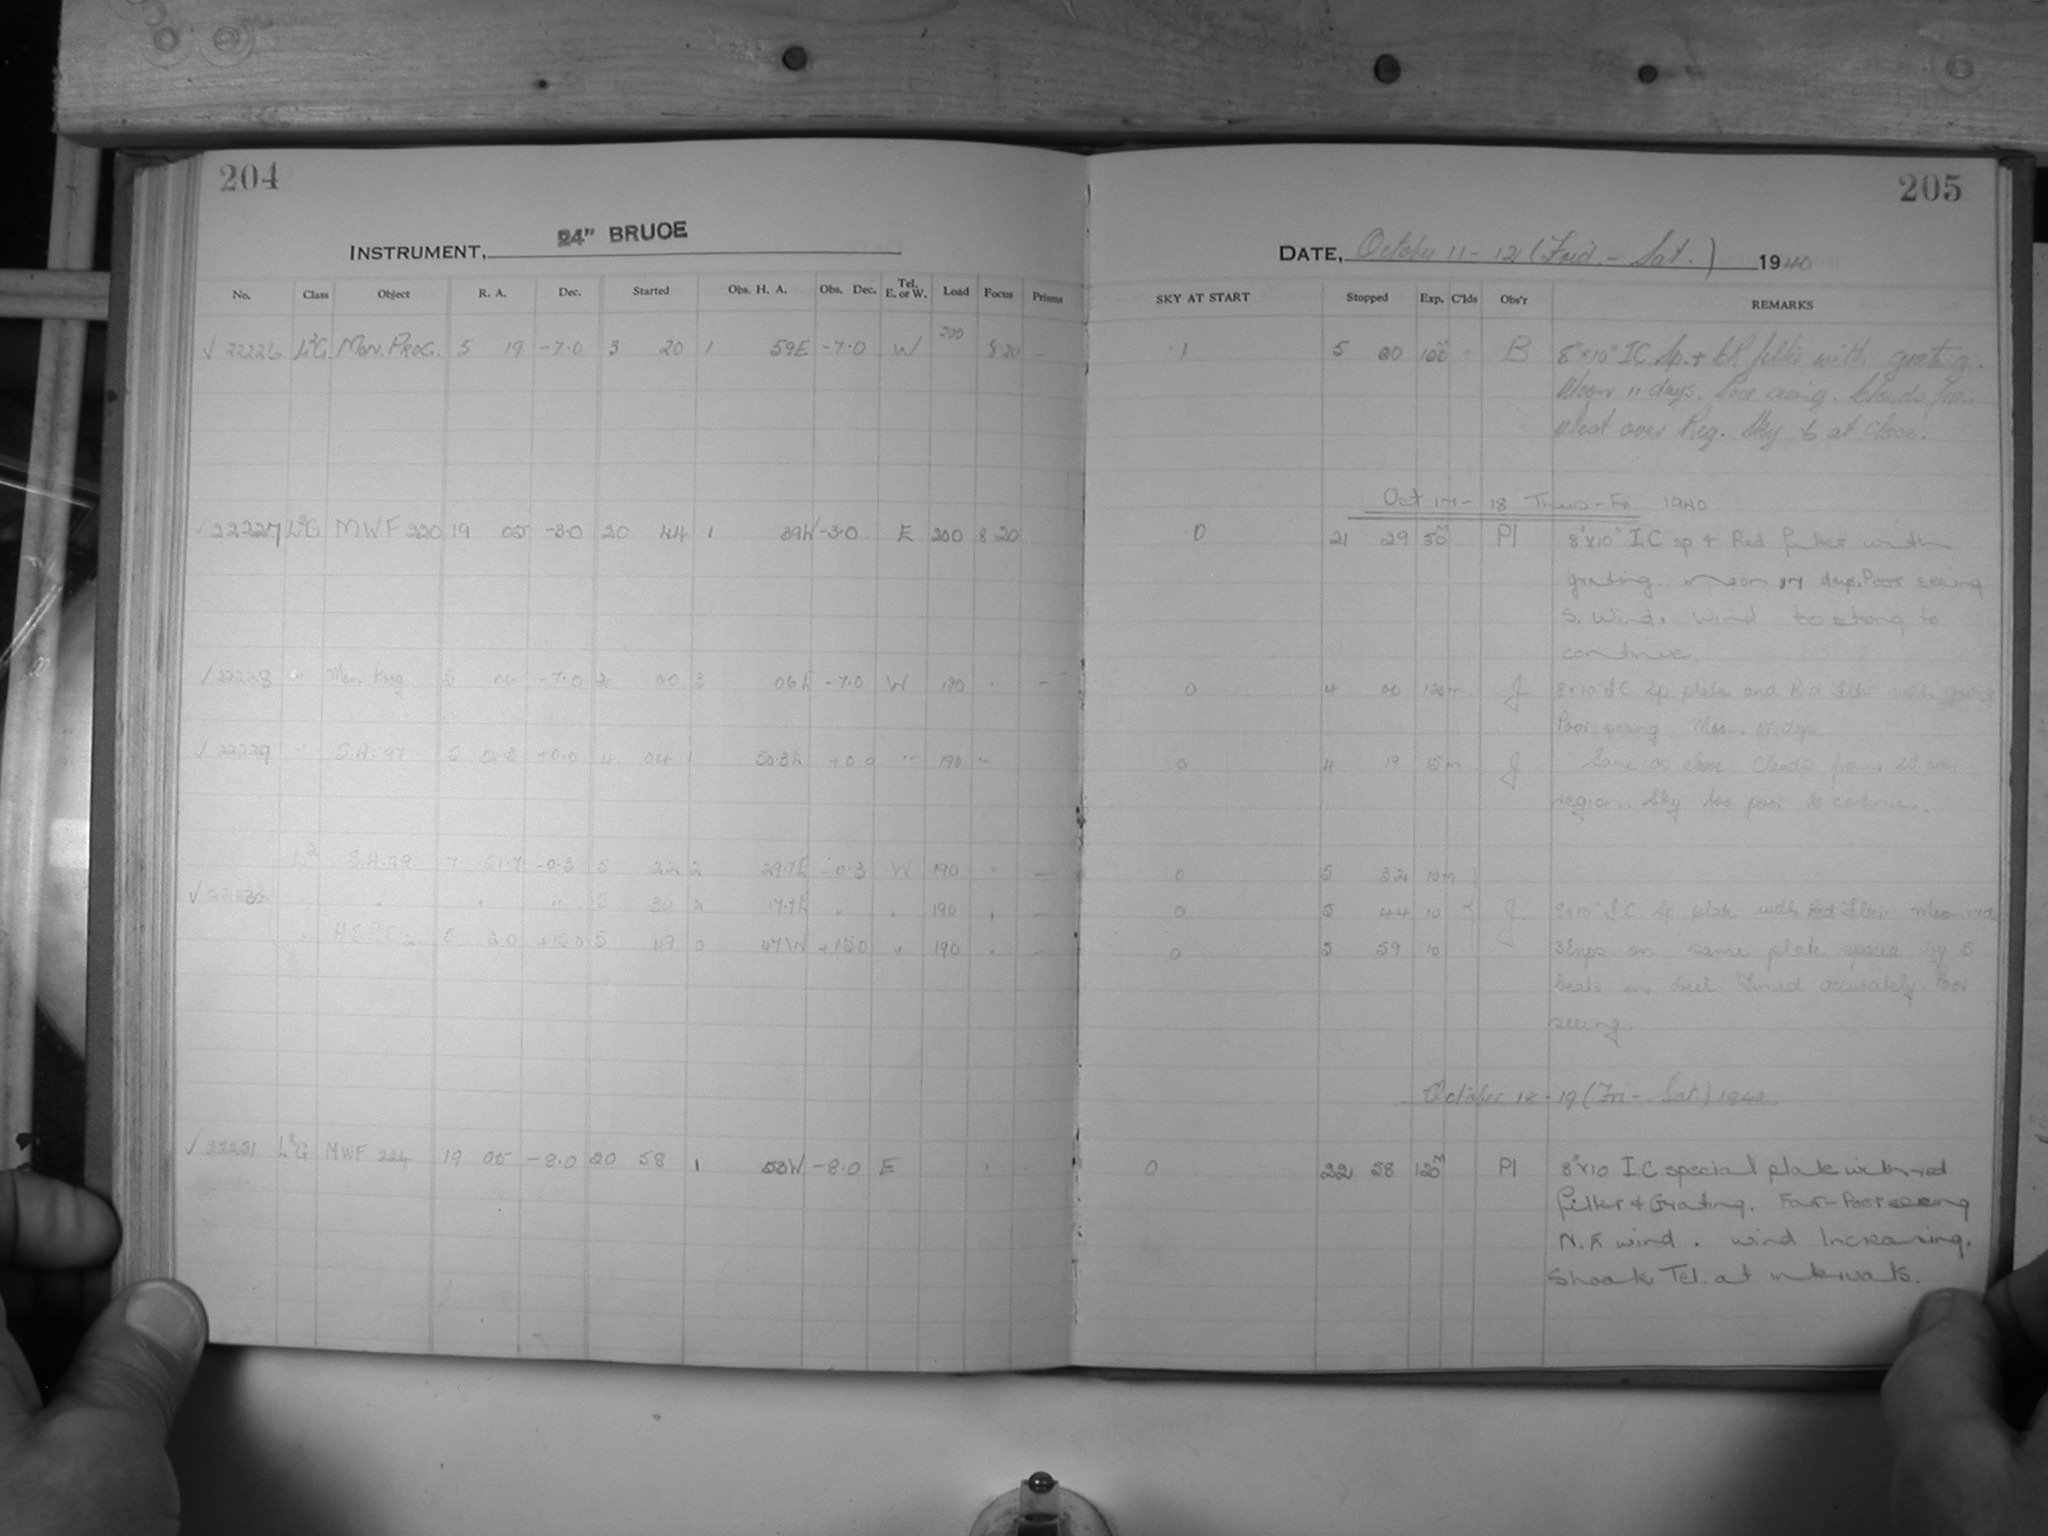 204
205
INSTRUMENT, 24" BRUCE
DATE, October 11 - 12 (Frid. - Sat.) 1940
No. Class Object R. A. Dec. Started Obs. H. A. Obs. Dec. Tel. E. or W. Load Focus Prisms
SKY AT START Stopped Exp. C'lds Obs'r REMARKS
√ 22226 L²G Mon. Prog. 5 19 -7.0 3 20 1 59E -7.0 W 200 8.20 -
1 5 00 100 - B 8"x10" I.C. Sp. + filter with grating.
Moon 11 days. Poor seeing. Clouds from
West over Reg. Sky 6 at close.
Oct 17 - 18 Thurs - Fri 1940
√ 22227 L²G MWF 220 19 05 -3.0 20 44 1 39W -3.0 E 200 8.20
0 21 29 50 Pl 8"x10" I.C sp + Red filter with
grating. Moon 17 days. Poor seeing
S. Wind. Wind too strong to
continue.
√ 22228 " Mon. Prog. 5 06 -7.0 2 00 3 06E -7.0 W 190 " -
0 4 00 120m J 8x10" I.C Sp. plate and Red filter with
Poor seeing Moon 17 days
√ 22229 " S.A. 97 5 +0.0 4 04 1 +0.0 " 190 "
0 4 19 J Same as above Clouds from over
region. Sky too poor to continue.
L² 7 51.7 -0.3 5 22 2 29.7E -0.3 W 190 " -
0 5 32 10m
√ 22230 " " " " 5 34 2 17.7E " " 190 " -
0 5 44 10 J 8x10" I.C Sp. plate with Red filter Moon
" 5 +15.0 5 49 0 47W +15.0 " 190 " -
0 5 59 10 on same plate spaced by 5
in Decl. Timed accurately. Poor
seeing.
October 18 - 19 (Fri - Sat.) 1940
√ 22231 L²G MWF 224 19 05 -8.0 20 58 1 53W -8.0 E
0 22 58 120m Pl 8"x10 I.C special plate with red
filter & Grating. Fair-Poor seeing
N.E wind. wind Increasing.
Shook Tel. at intervals.